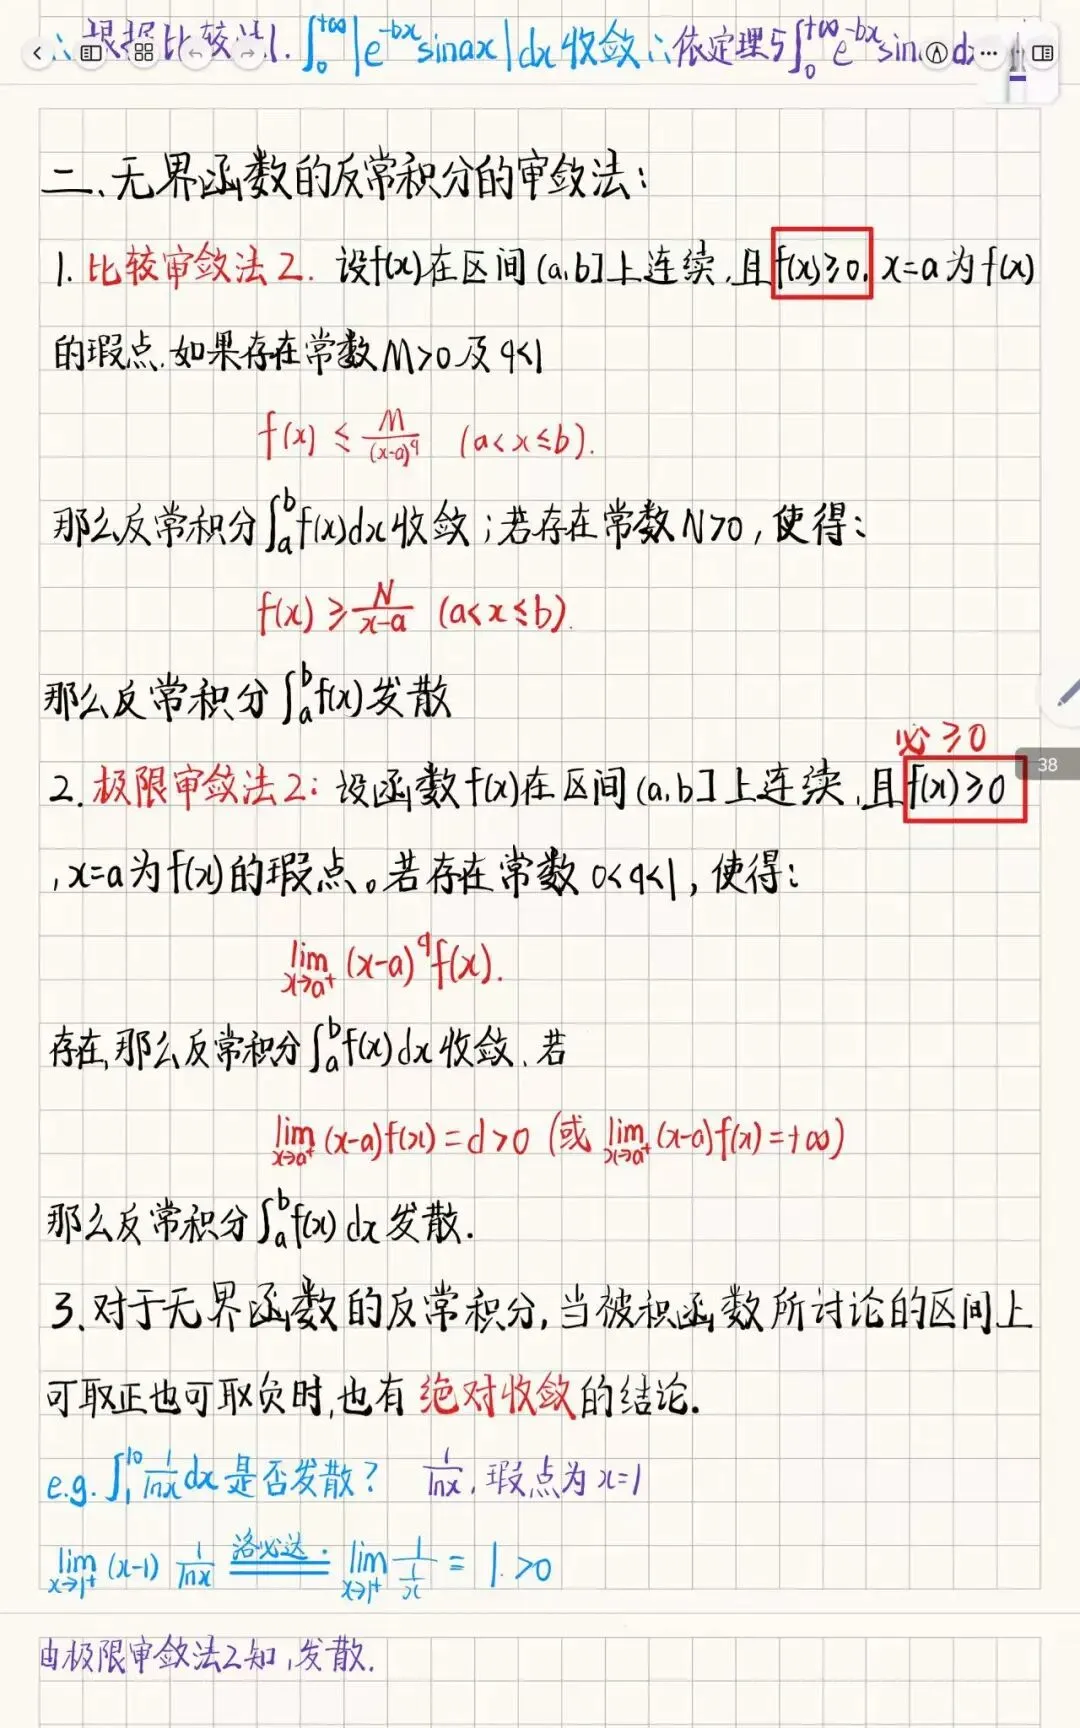 ∴根据比较法1. ∫₀^{+∞}|e^{-bx}sinax|dx收敛∴依定理5∫₀^{+∞}e^{-bx}sin
二、无界函数的反常积分的审敛法:
1. 比较审敛法2. 设f(x)在区间(a,b]上连续,且f(x)≥0. x=a为f(x)
的瑕点.如果存在常数M>0及q<1
f(x) ≤ M/(x-a)^q (a<x≤b).
那么反常积分∫ₐᵇf(x)dx收敛;若存在常数N>0,使得:
f(x) ≥ N/(x-a) (a<x≤b).
那么反常积分∫ₐᵇf(x)发散
必≥0
38
2. 极限审敛法2: 设函数f(x)在区间(a,b]上连续,且f(x)≥0
,x=a为f(x)的瑕点。若存在常数0<q<1,使得:
lim_{x→a⁺}(x-a)^q f(x).
存在,那么反常积分∫ₐᵇf(x)dx收敛.若
lim_{x→a⁺}(x-a)f(x)=d>0 (或 lim_{x→a⁺}(x-a)f(x)=+∞)
那么反常积分∫ₐᵇf(x)dx发散.
3.对于无界函数的反常积分,当被积函数所讨论的区间上
可取正也可取负时,也有绝对收敛的结论.
e.g. ∫₁¹⁰ 1/lnx dx是否发散? 1/lnx,瑕点为x=1
lim_{x→1⁺}(x-1) 1/lnx 洛必达. = lim_{x→1⁺} 1/(1/x) = 1.>0
由极限审敛法2知,发散.